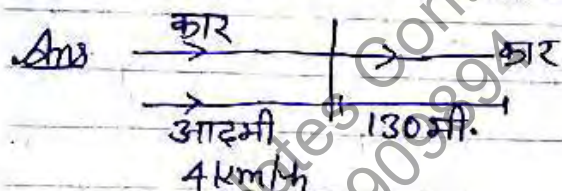 Ans कार कार
आदमी 130 मी.
4 km/h